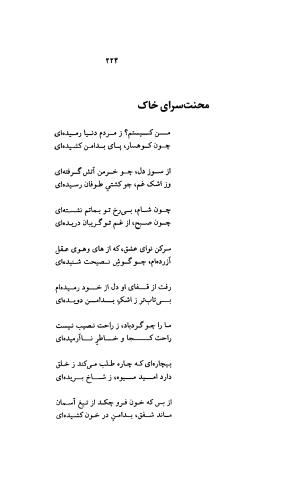 ۲۲۴
محنت‌سرای خاک
من کیستم؟ ز مردم دنیا رمیده‌ای
چون کوهسار، پای بدامن کشیده‌ای
از سوز دل، چو خرمن آتش گرفته‌ای
وز اشک غم، چو کشتی طوفان رسیده‌ای
چون شام، بی‌رخ تو بماتم نشسته‌ای
چون صبح، از غم تو گریبان دریده‌ای
سرکن نوای عشق، که از های وهوی عقل
آزرده‌ام، چو گوش نصیحت شنیده‌ای
رفت از قفای او دل از خود رمیده‌ام
بی‌تاب‌تر ز اشک بدامن دویده‌ای
ما را چو گردباد، ز راحت نصیب نیست
راحت کجا و خاطر ناآرمیده‌ای
بیچاره‌ای که چاره طلب می‌کند ز خلق
دارد امید میوه، ز شاخ بریده‌ای
از بس که خون فرو چکد از تیغ آسمان
ماند شفق، بدامن در خون کشیده‌ای